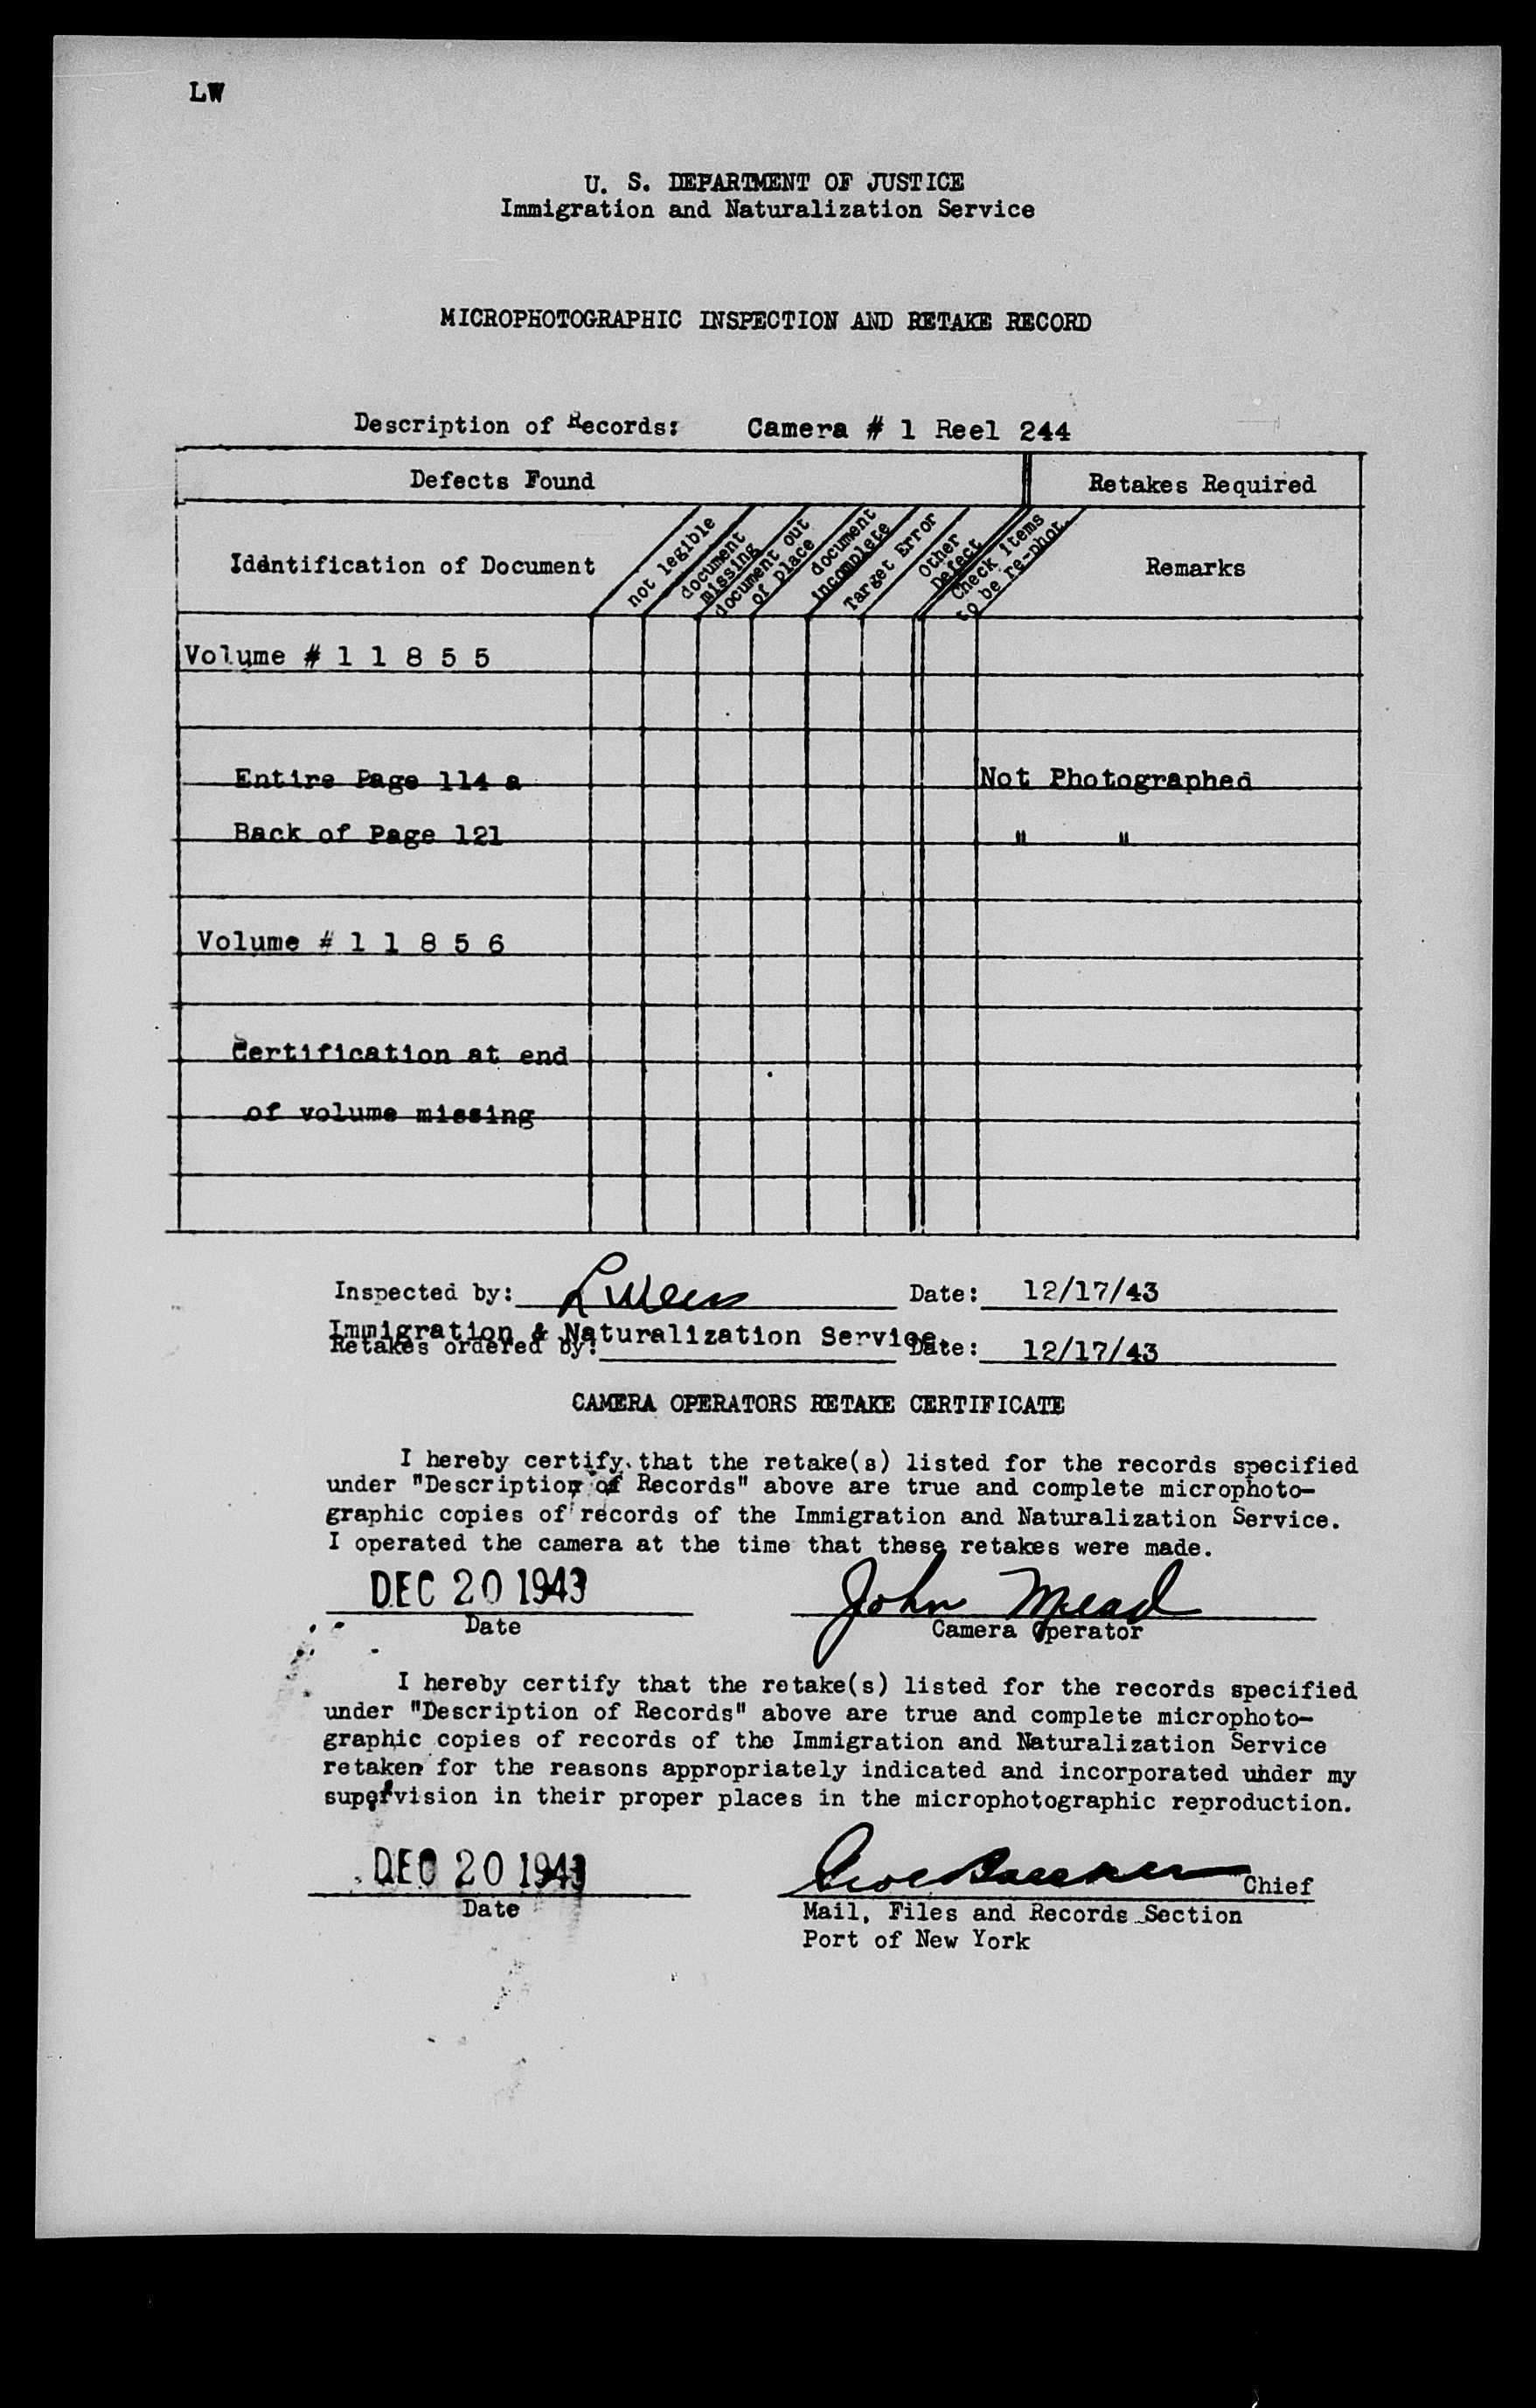 LW
U. S. DEPARTMENT OF JUSTICE
Immigration and Naturalization Service
MICROPHOTOGRAPHIC INSPECTION AND RETAKE RECORD
Description of Records: Camera # 1 Reel 244
Defects Found Retakes Required
Identification of Document
not legible
document
missing
document out
of place
document
incomplete
Target Error
Other
Defect
Check items
to be re-phot.
Remarks
Volume # 1 1 8 5 5
Entire Page 114 a Not Photographed
Back of Page 121 " "
Volume # 1 1 8 5 6
Certification at end
of volume missing
Inspected by: Date: 12/17/43
Immigration & Naturalization Service
Retakes ordered by: Date: 12/17/43
CAMERA OPERATORS RETAKE CERTIFICATE
I hereby certify that the retake(s) listed for the records specified
under "Description of Records" above are true and complete microphoto-
graphic copies of records of the Immigration and Naturalization Service.
I operated the camera at the time that these retakes were made.
DEC 20 1943 John Mead
Date Camera Operator
I hereby certify that the retake(s) listed for the records specified
under "Description of Records" above are true and complete microphoto-
graphic copies of records of the Immigration and Naturalization Service
retaken for the reasons appropriately indicated and incorporated under my
supervision in their proper places in the microphotographic reproduction.
DEC 20 1943 Chief
Date Mail, Files and Records Section
Port of New York